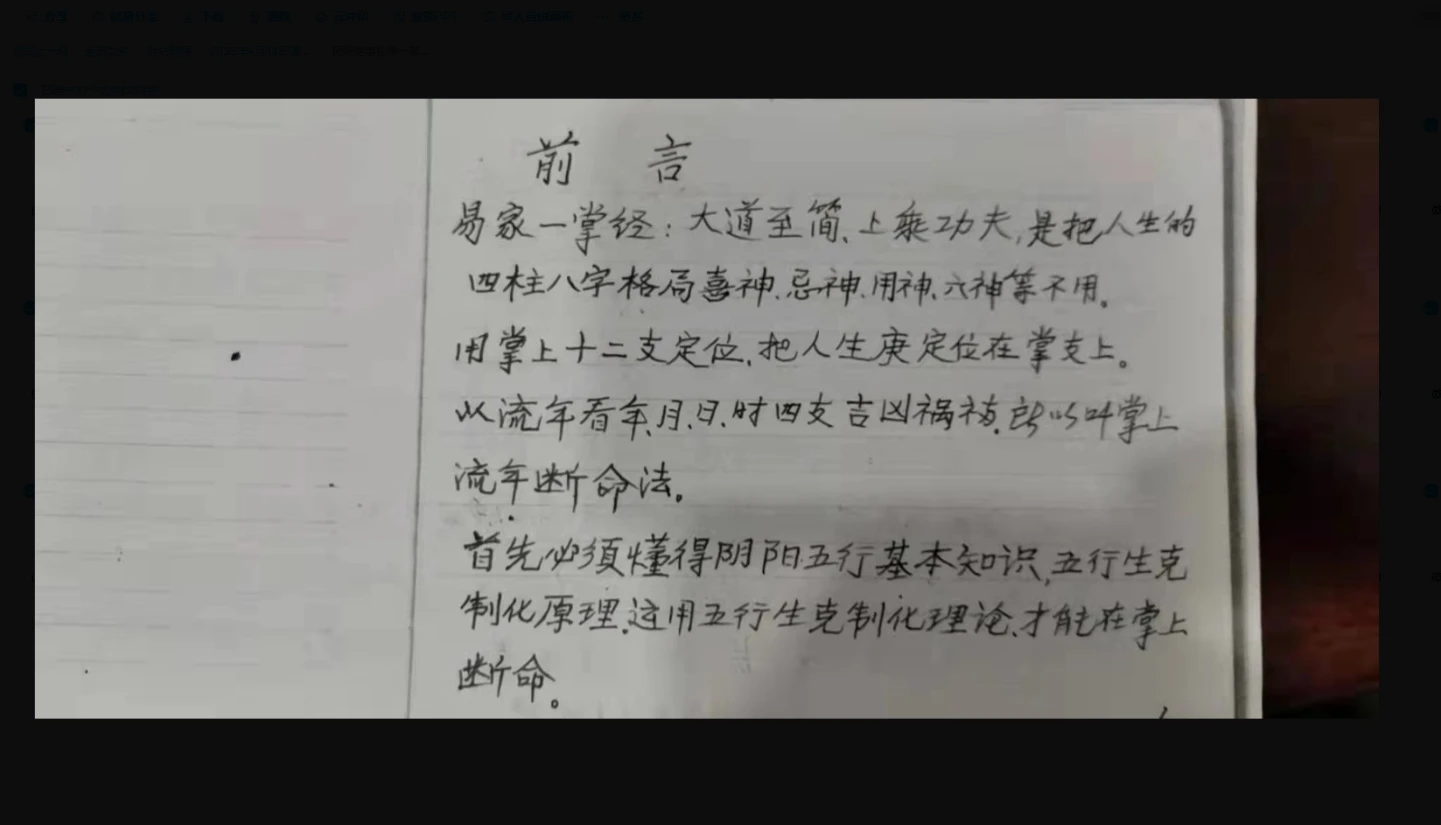 前 言
易家一掌经：大道至简、上乘功夫，是把人生的
四柱八字格局喜神、忌神、用神、六神等不用。
用掌上十二支定位，把人生庚定位在掌支上。
以流年看年、月、日、时四支吉凶祸福，所以叫掌上
流年断命法。
首先必须懂得阴阳五行基本知识，五行生克
制化原理，运用五行生克制化理论，才能在掌上
断命。